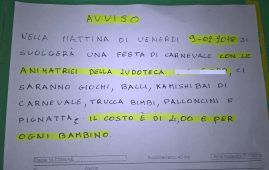 AVVISO
NELLA MATTINA DI VENERDÌ 9-02-2018 SI
SVOLGERÀ UNA FESTA DI CARNEVALE CON LE
ANIMATRICI DELLA LUDOTECA CI
SARANNO GIOCHI, BALLI, KAMISHIBAI DI
CARNEVALE, TRUCCA BIMBI, PALLONCINI E
PIGNATTA, IL COSTO È DI 4,00 € PER
OGNI BAMBINO.